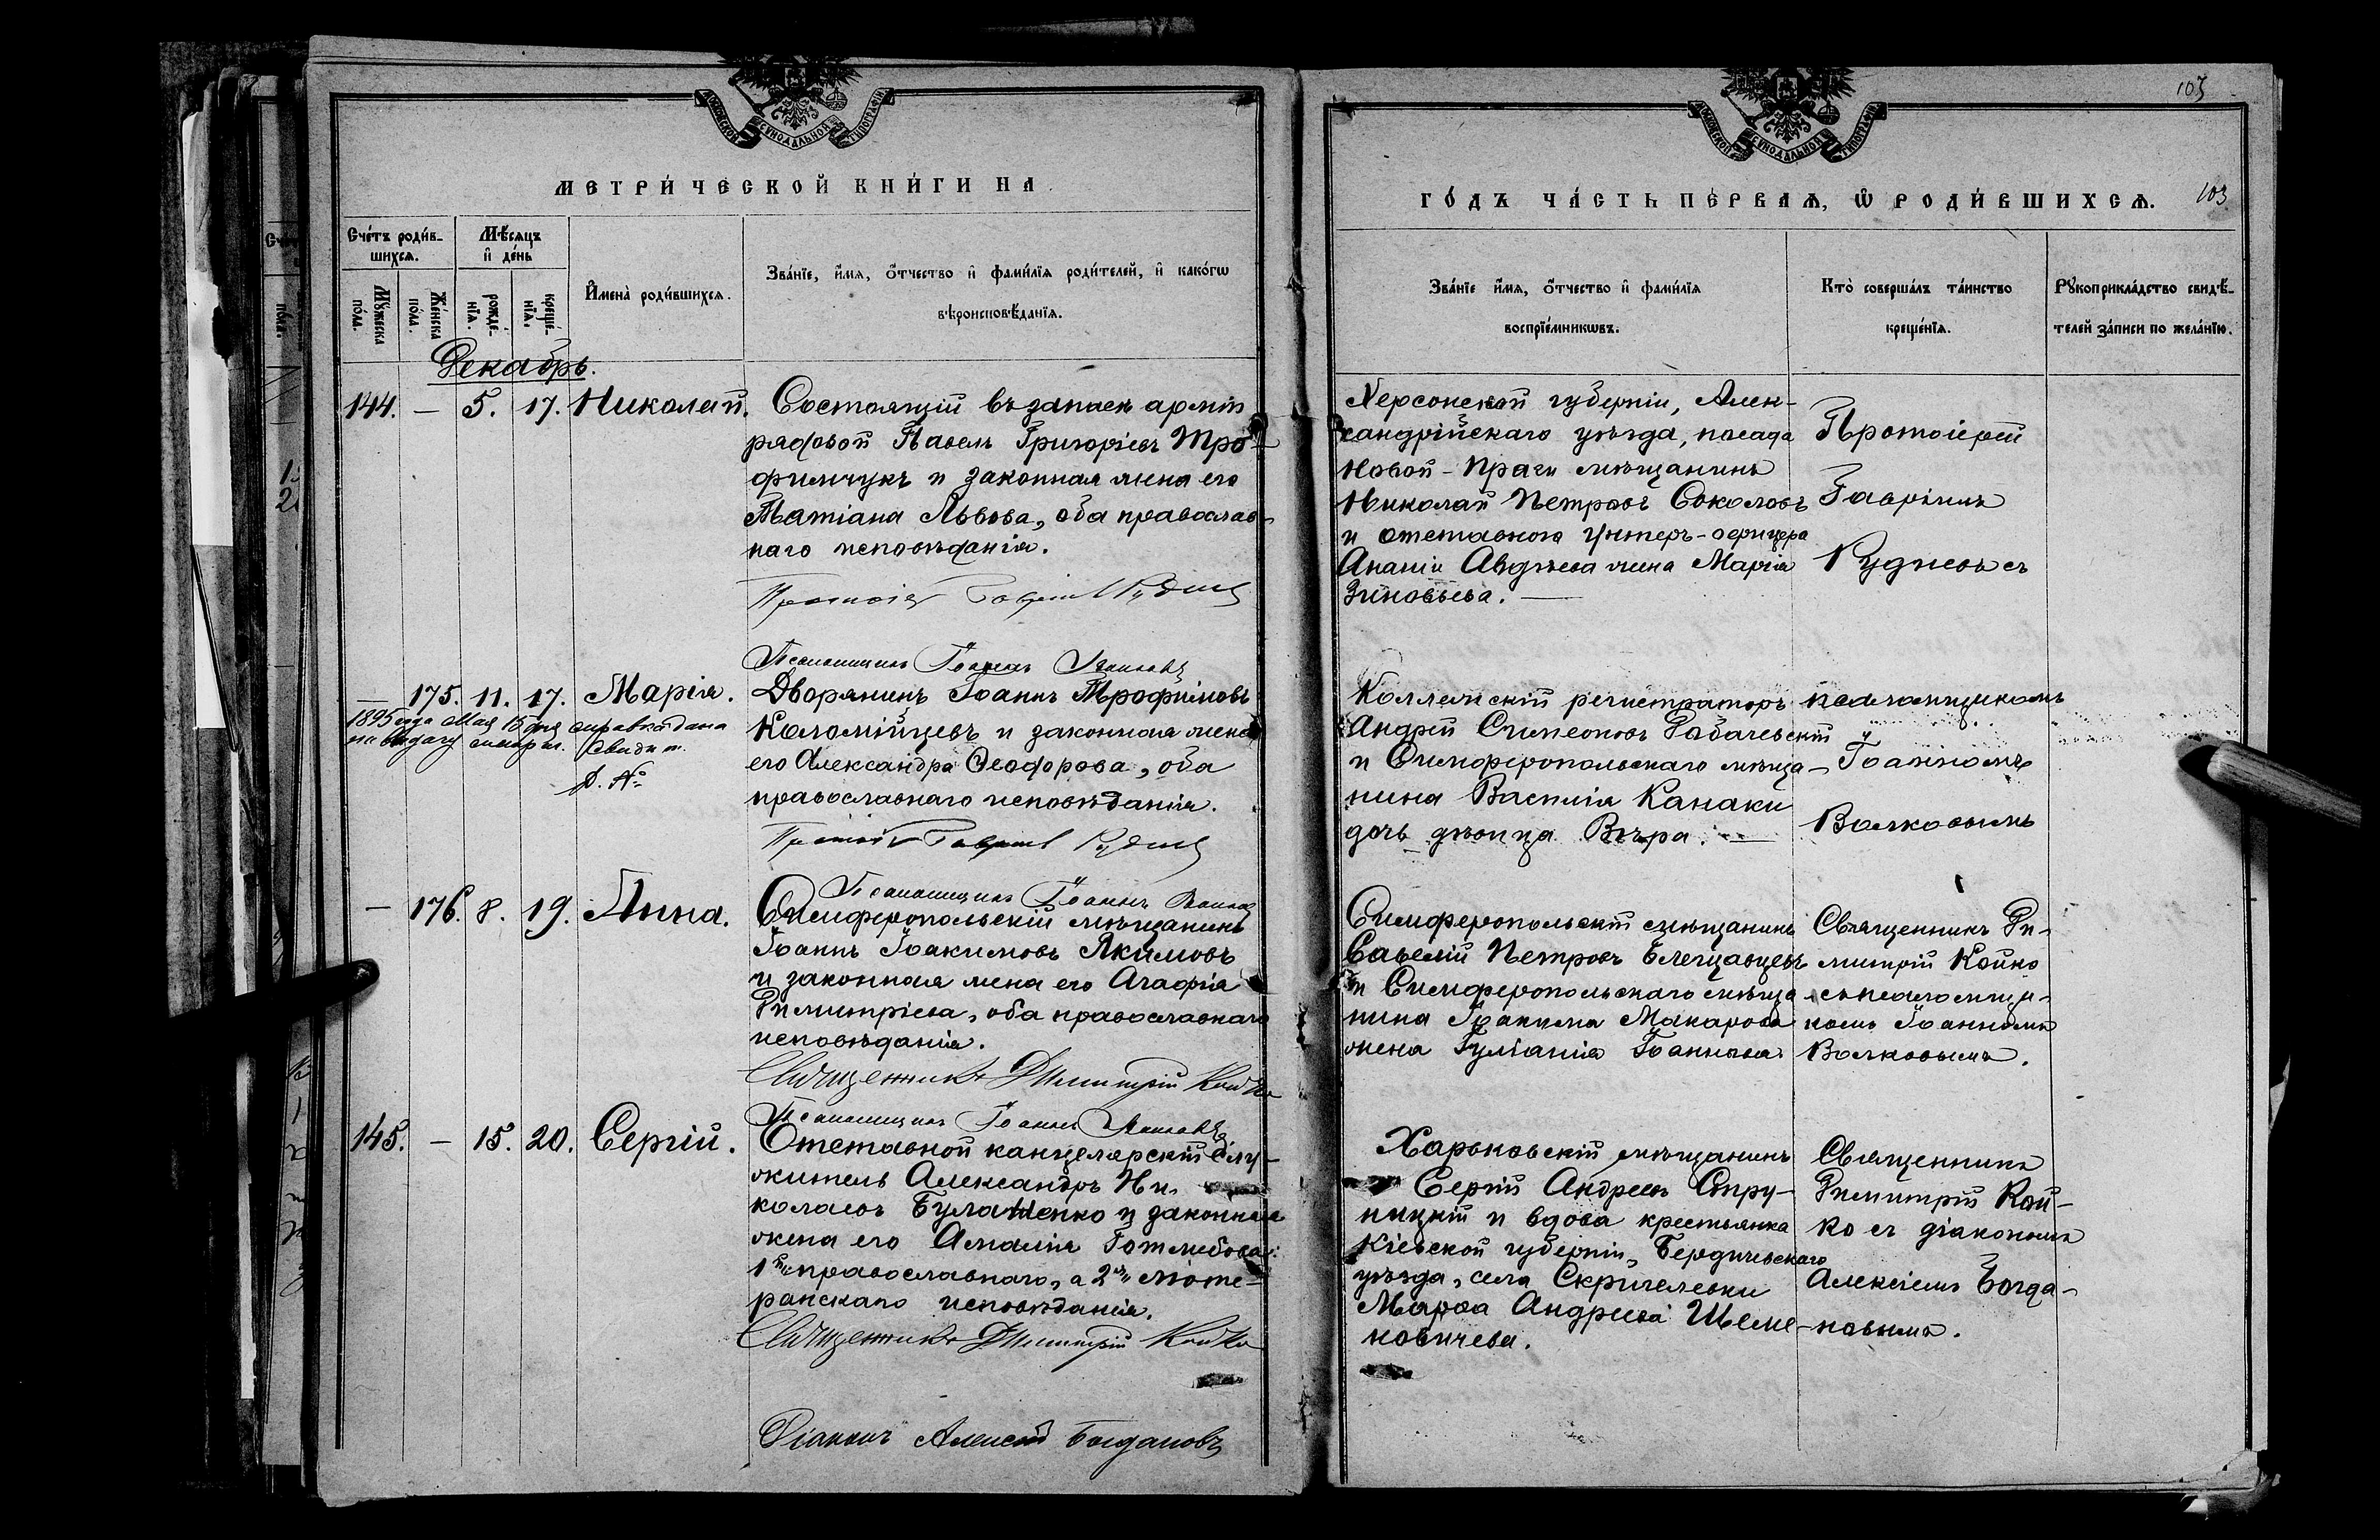 МОСКОВСКОЙ СѴНОДАЛЬНОЙ ТИПОГРАФІИ
МЕТРИ́ЧЕСКОЙ КНИ́ГИ НА
Сче́тъ роди́в-
шихсѧ.
Мѣ́сѧцъ
и҆ де́нь
Мꙋ́жеска
по́ла.
Же́нска
по́ла.
рожде́-
нїѧ.
креще́-
нїѧ.
И҆мена̀ роди́вшихсѧ.
Зва́нїе, и҆́мѧ, ѻ҆́тчество и҆ фами́лїѧ роди́телей, и҆ како́гѡ
вѣроисповѣ́данїѧ.
Декабрь.
144. — 5. 17. Николай.
Состоящій въ запасѣ арміи
рядовой Павелъ Григоріевъ Тро-
фимчукъ и законная жена его
Татіана Львова, оба православ-
наго исповѣданія.
Протоіерей Гавріилъ Руднев
Псаломщикъ Іоаннъ Волковъ
— 175. 11. 17. Марія.
1895 года Мая 15 дня справка дана
на выдачу метрич. свидѣт.
Дворянинъ Іоаннъ Трофимовъ
Коломійцевъ и законная жена
его Александра Ѳеодорова, оба
православнаго исповѣданія.
Протоіерей Гавріилъ Руднев
Псаломщикъ Іоаннъ Волковъ
— 176. 8. 19. Анна.
Симферопольскій мѣщанинъ
Іоаннъ Іоакимовъ Якимовъ
и законная жена его Агафія
Димитріева, оба православнаго
исповѣданія.
Священникъ Димитрій Койко
Псаломщикъ Іоаннъ Волковъ
145. — 15. 20. Сергій.
Отставной канцелярскій слу-
житель Александръ Ни-
колаевъ Булашенко и законная
жена его Амалія Готлибова:
1й православнаго, а 2я люте-
ранскаго исповѣданія.
Священникъ Димитрій Койко
Діаконъ Алексій Богдановъ
103
МОСКОВСКОЙ СѴНОДАЛЬНОЙ ТИПОГРАФІИ
ГО́ДЪ ЧА́СТЬ ПЕ́РВАѦ, Ѡ҆ РОДИ́ВШИХСѦ.
103
Зва́нїе и҆́мѧ, ѻ҆́тчество и҆ фами́лїѧ
воспрїе́мникѡвъ.
Кто̀ соверша́лъ та́инство
креще́нїѧ.
Рꙋкоприкла́дство свидѣ́-
телей за́писи по жела́нїю.
Херсонской губерніи, Алек-
сандрійскаго уѣзда, посада
Новой-Праги мѣщанинъ
Николай Петровъ Соколовъ
и отставного унтеръ-офицера
Ананіи Авдѣева жена Марія
Зиновьева. —
Протоіерей
Гавріилъ
Рудневъ съ
Коллежскій регистраторъ
Андрей Симеоновъ Рабачевскій
и Симферопольскаго мѣща-
нина Василія Канаки
дочь дѣвица Вѣра. —
псаломщикомъ
Іоанномъ
Волковымъ
Симферопольскій мѣщанинъ
Савелій Петровъ Блещавцевъ
и Симферопольскаго мѣща-
нина Іоакима Макарова
жена Іуліанія Іоаннова
Священникъ Ди-
митрій Койко
съ псаломщи-
комъ Іоанномъ
Волковымъ.
Харьковскій мѣщанинъ
Сергій Андреевъ Стру-
ницкій и вдова крестьянка
Кіевской губерніи, Бердичевскаго
уѣзда, села Скригелевки
Марѳа Андреева Шеме-
новичева.
Священникъ
Димитрій Кой-
ко съ діакономъ
Алексіемъ Богда-
новымъ.